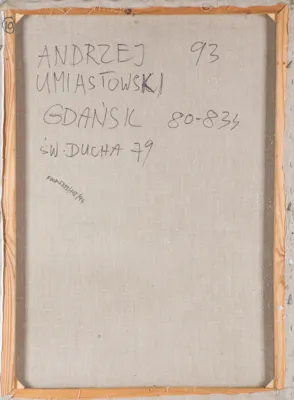 10
ANDRZEJ 93
UMIASTOWSKI
GDAŃSK 80-834
ŚW. DUCHA 79